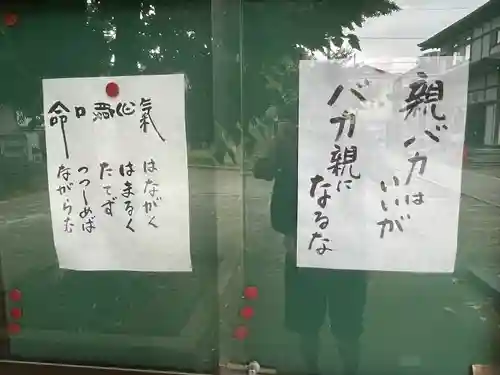 氣はながく
心はまるく
腹たてず
口つつしめば
命ながらむ
親バカは
いいが
バカ親に
なるな